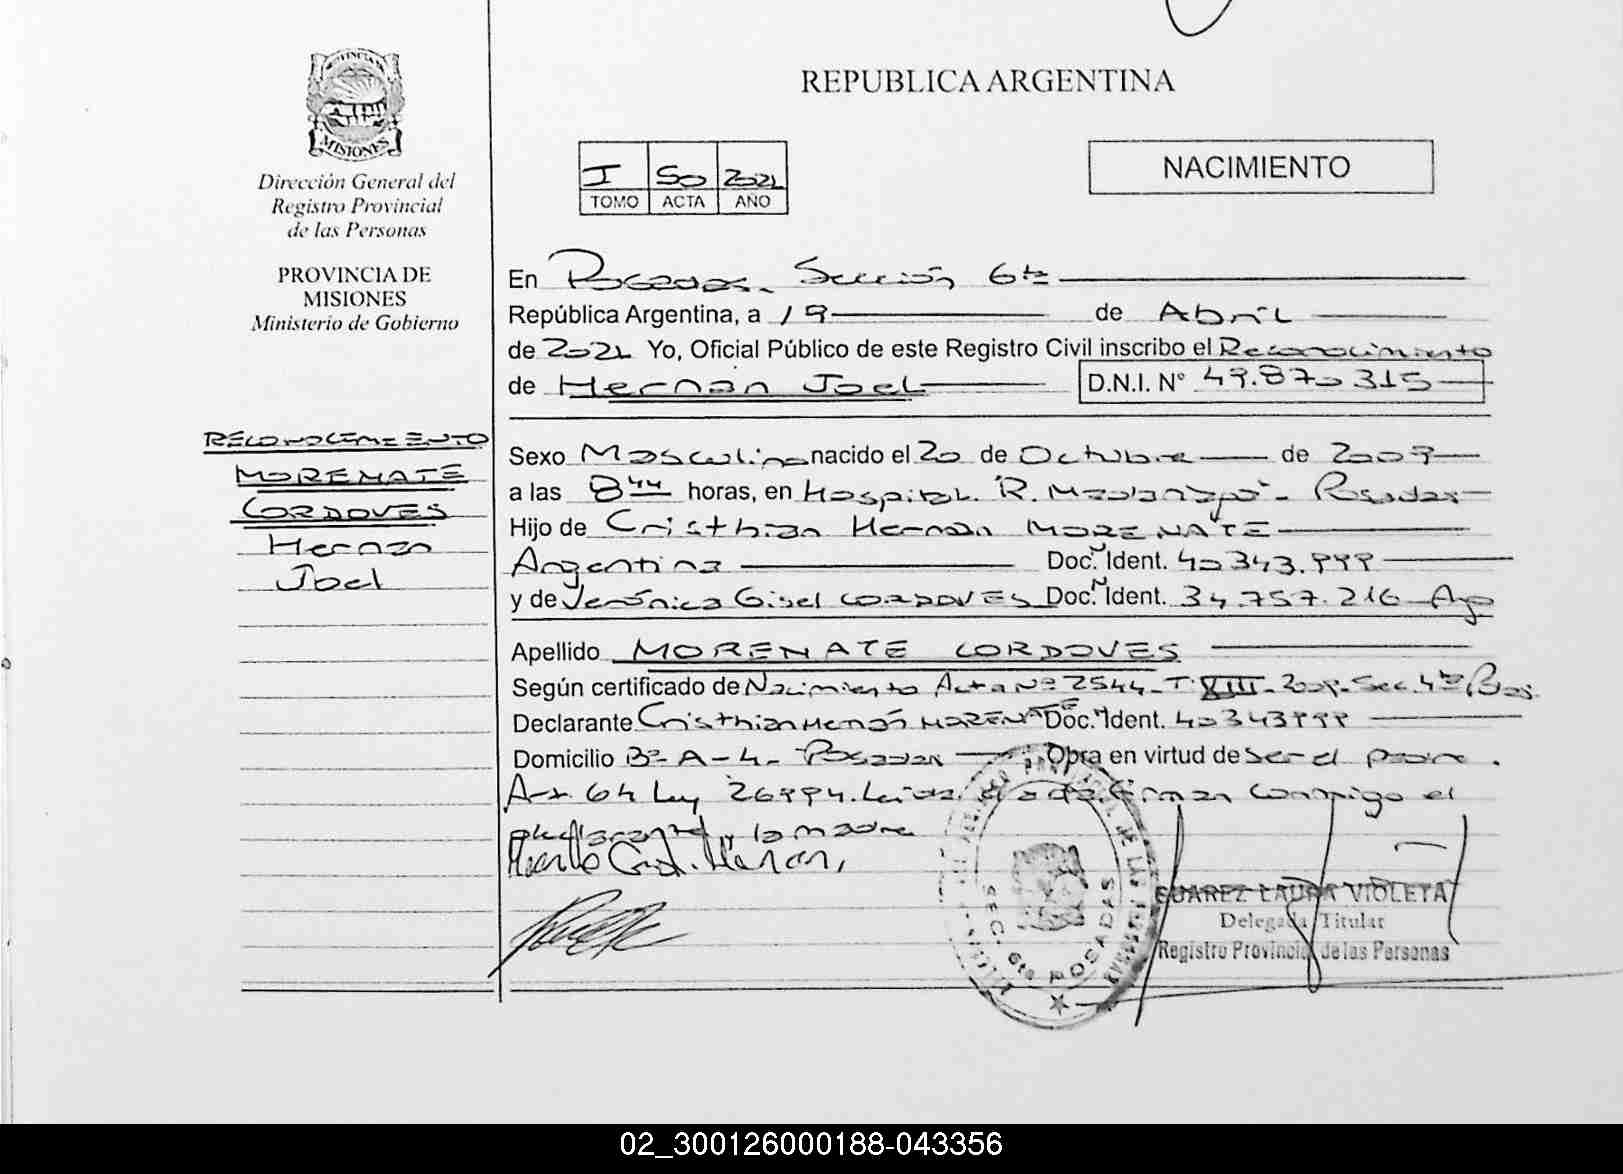 PROVINCIA DE
MISIONES
Dirección General del
Registro Provincial
de las Personas
PROVINCIA DE
MISIONES
Ministerio de Gobierno
RECONOCIMIENTO
MORENATE
CORDOVES
Hernan
Joel
REPUBLICA ARGENTINA
I 50 2021
TOMO ACTA AÑO
NACIMIENTO
En Posadas. Sección 6ta
República Argentina, a 19 de Abril
de 2021 Yo, Oficial Público de este Registro Civil inscribo el Reconocimiento
de Hernan Joel D.N.I. N° 49.870315
Sexo Masculino nacido el 20 de Octubre de 2009
a las 8 44 horas, en Hospital "R. Madariaga"- Posadas
Hijo de Cristhian Hernan MORENATE
Argentina Doc. Ident. 40343.999
y de Verónica Gisel CORDOVES Doc. Ident. 34.757.216 Arg
Apellido MORENATE CORDOVES
Según certificado de Nacimiento Acta Nº 2544-T: XIII-2009-Sec. 4ta Pdas
Declarante Cristhian Hernán MORENATE Doc. Ident. 40343999
Domicilio Bº A-4- Posadas Obra en virtud de ser el padre.
Art. 64 Ley 26994. Leída el acta firman conmigo el
declarante y la madre
SEC. 6ta POSADAS
SUAREZ LAURA VIOLETA
Delegada Titular
Registro Provincial de las Personas
02_300126000188-043356